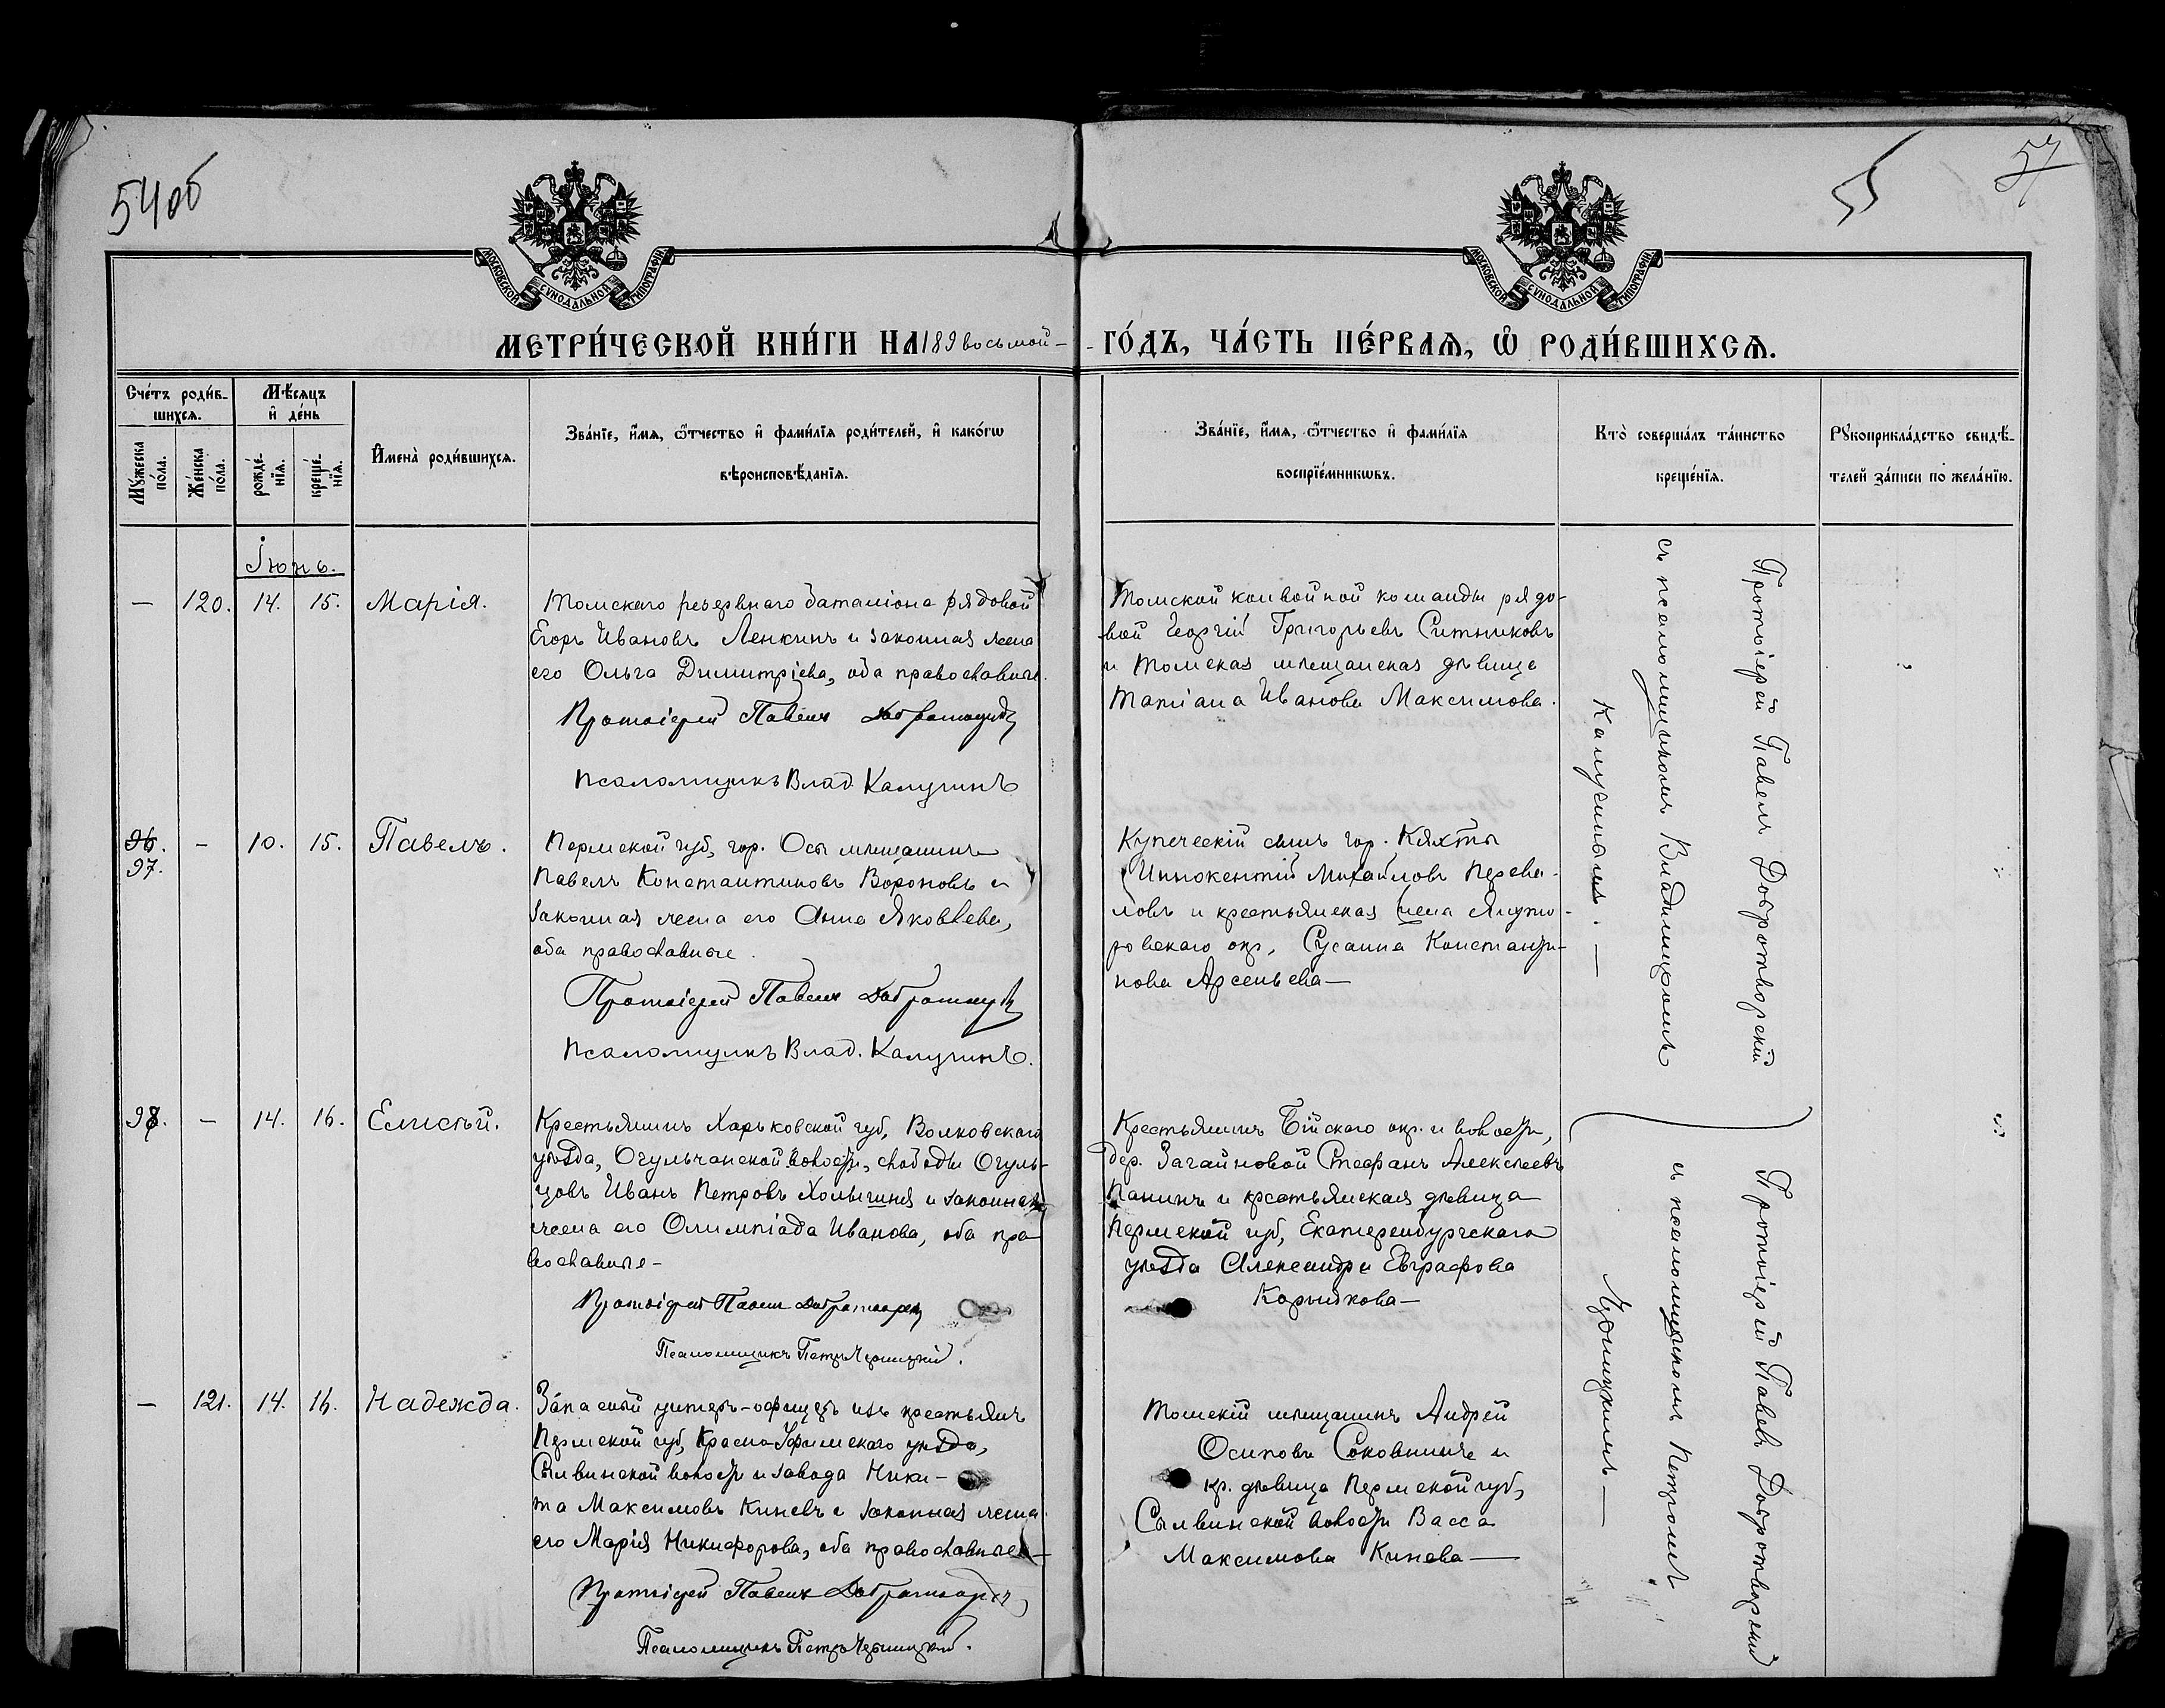 54об
55
57
МОСКОВСКОЙ СУНОДАЛЬНОЙ ТИПОГРАФІИ
МОСКОВСКОЙ СУНОДАЛЬНОЙ ТИПОГРАФІИ
МЕТРИ́ЧЕСКОЙ КНИ́ГИ НА 189восьмой – ГО́ДЪ, ЧА́СТЬ ПЕ́РВАѦ, Ѽ РОДИ́ВШИХСѦ.
Сче́тъ роди́в-
шихсѧ.
Мѣ́сѧцъ
и҆ де́нь
Мꙋ́жеска
по́ла.
Же́нска
по́ла.
рожде́-
нїѧ.
креще́-
нїѧ.
И҆мена̀ роди́вшихсѧ.
Зва́нїе, и҆́мѧ, ѻ҆́тчество и҆ фами́лїѧ роди́телей, и҆ како́гѡ
вѣроисповѣ́данїѧ.
Зва́нїе, и҆́мѧ, ѻ҆́тчество и҆ фами́лїѧ
воспрїе́мникѡвъ.
Кто̀ соверша́лъ та́инство
креще́нїѧ.
Рꙋкоприкла́дство свидѣ́-
телей за́писи по жела́нїю.
Іюнь.
— 120. 14. 15. Марія.
Томскаго резервнаго баталіона рядовой
Егоръ Ивановъ Ленкинъ и законная жена
его Ольга Димитріева, оба православные.
Протоіерей Павелъ Добротворскій
Псаломщикъ Влад. Калугинъ
Томской конвойной команды рядо-
вой Георгій Григорьевъ Ситниковъ
и Томская мѣщанская дѣвица
Татіана Иванова Максимова.
96. — 10. 15. Павелъ.
97.
Пермской губ, гор. Осы мѣщанинъ
Павелъ Константиновъ Вороновъ и
законная жена его Анна Яковлева,
оба православные.
Протоіерей Павелъ Добротворскій
Псаломщикъ Влад. Калугинъ.
Купеческій сынъ гор. Кяхты
Иннокентій Михайловъ Перева-
ловъ и крестьянская жена Ялуто-
ровскаго окр, Сусанна Констант-
нова Арсеньева —
Протоіерей Павелъ Добротворскій
съ псаломщикомъ Владимиромъ
Калугинымъ. —
98. — 14. 16. Елисѣй.
Крестьянинъ Харьковской губ, Волковскаго
уѣзда, Огульчанской волости, слободы Огуль-
цовъ Иванъ Петровъ и законная
жена его Олимпіада Иванова, оба пра
вославные —
Протоіерей Павелъ Добротворскій
Псаломщикъ Петръ
Крестьянинъ Бійскаго окр. и волости,
дер. Загайновой Стефанъ Алексѣевъ
Панинъ и крестьянская дѣвица
Пермской губ, Екатеринбургскаго
уѣзда Александра Евграфова
Корыткова —
— 121. 14. 16. Надежда.
Запасный унтеръ-офицеръ изъ крестьянъ
Пермской губ, Красно Уфимскаго уѣзда,
Сылвинской волости и завода Ники-
та Максимовъ Киневъ и законная жена
его Марія Никифорова, оба православные —
Протоіерей Павелъ Добротворскій
Псаломщикъ Петръ
Томскій мѣщанинъ Андрей
Осиповъ Соковнинъ и
кр. дѣвица Пермской губ,
Сылвинской волости Васса
Максимова Кинева —
Протоіерей Павелъ Добротворскій
и псаломщикомъ Петромъ